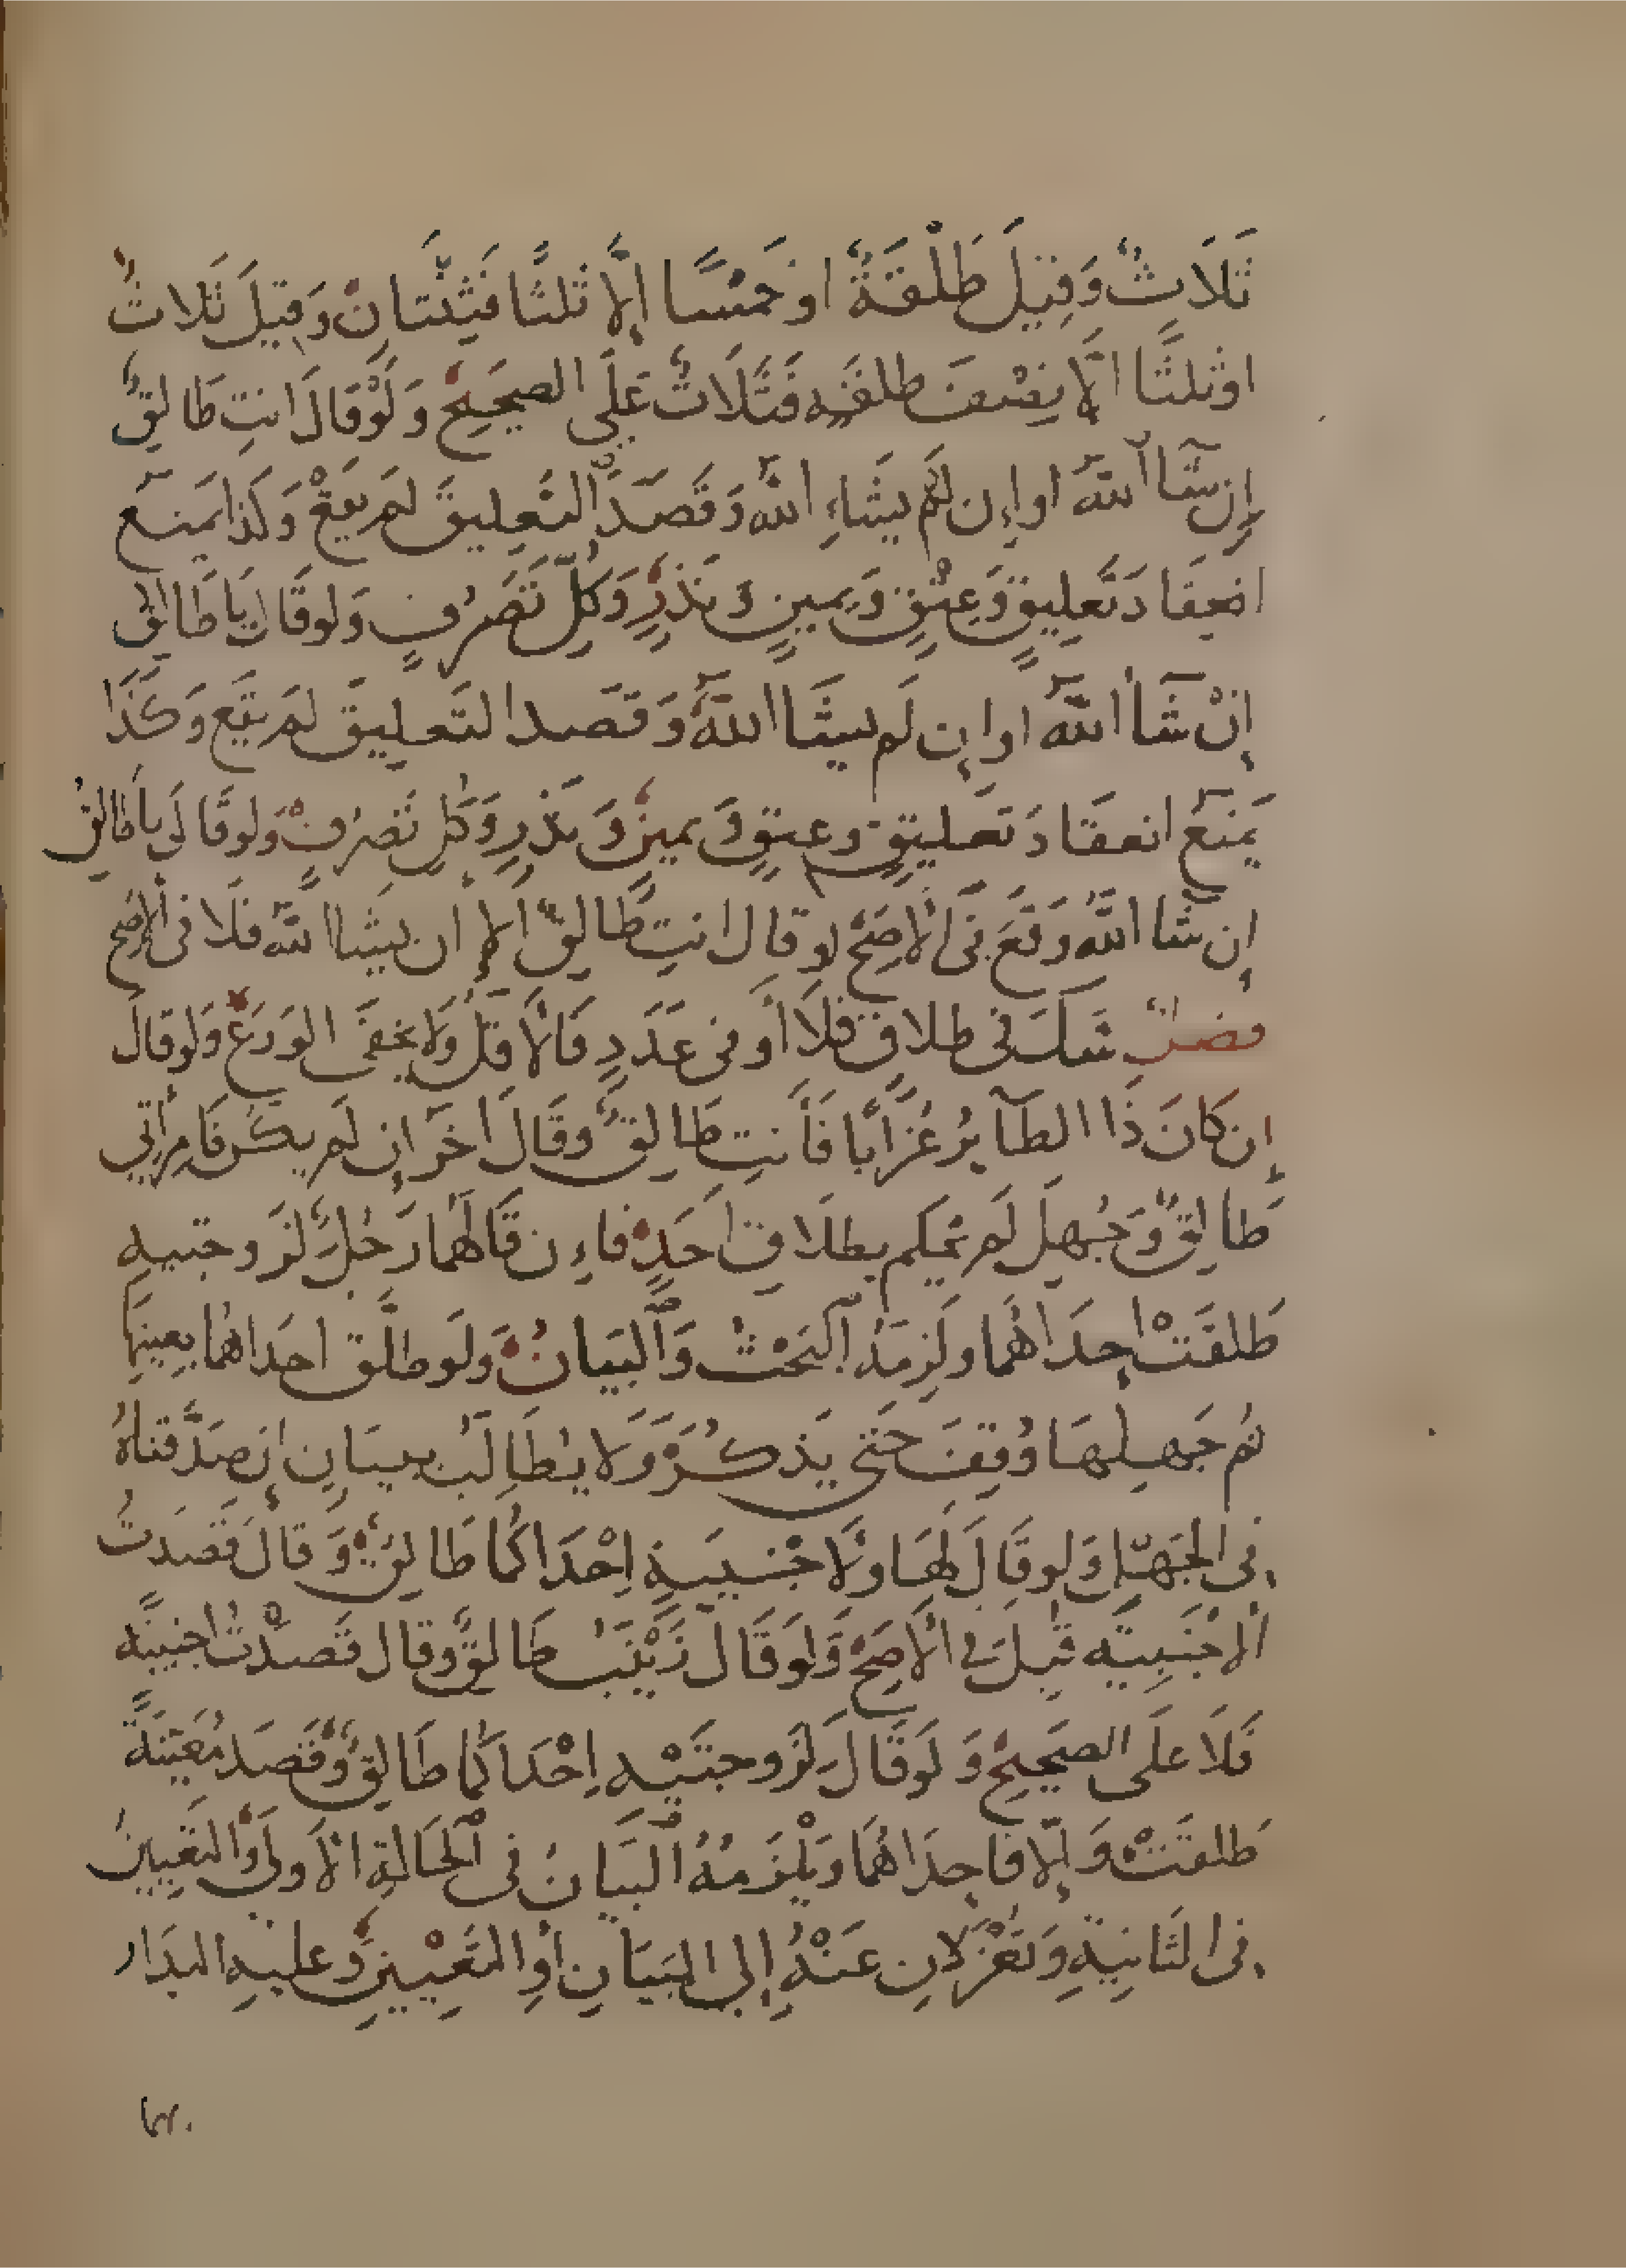 ثَلَاثٌ وَقِيلَ طَلْقَةٌ اوخَمْسًا إلَّا ثلثًا فَثِنْتَانِ وَقيلَ ثَلاثٌ
اوثلثًا الَّا نِصْفَ طلقَةٍ فَثَلَاثٌ عَلَى الصحِيحِ وَلَوْ قَالَ انتِ طَالِقٌ
إن شَآ اللّهُ اواِن لَمْ يشَاءِ اللّهُ وَقَصَدَ التَعْلِيقَ لَم يَقَعْ وَكَذَا يَمنَع
انعِقَادَ تَعلِيقٍ وَعِتْقٍ وَيَمينٍ وَنَذْرٍ وَكلِّ تَصَرُفٍ وَلوقَالَ يَا طَالِقُ
إنْ شَآ اللّهُ اواِن لَم يشَا اللّهُ وَقَصَد التَعليقَ لَم يَقَع وَكَذَا
يَمنَعُ انعقَادَ تعليقٍ وعتقٍ وَيمينٍ وَنَذْرٍ وَكلِ تَصَرُفٍ وَلوقَالَ يا طَالِقُ
إن شَآ اللّهُ وَقَعَ فِى الْاصَحِ لو قال انتِ طَالِقٌ الا ان يشَا اللّه فلَا فى الاصَح
فصلٌ شَكَ فى طلاقٍ فَلَا أوفى عَدَدٍ فَالْاقَلُ وَلا يخفَى الوَرَعُ وَلوقالَ
إن كانَ ذَا الطَآيرُ غُرَابًا فَأَنتِ طَالِقٌ وقَالَ اخَرَ إن لَم يكُن فَامرأتِي
طَالِقٌ وَجُهِلَ لَم يُحكم بطلَاقِ احَدٍ فاءن قَالَهُما رَجُلٌ لزَوجتيهِ
طَلقَتْ اِحدَاهُما ولَزِمَهُ البَحْثُ وَالْبَيَانُ وَلَو طلَّق احدَاهُما بِعينِهَا
ثُم جَهِلهَا وُقِفَ حَتى يَذكُرَ وَلا يُطَالَبُ ببيَانٍ اِن صَدَّقتَاهُ
فِى الجَهْلِ وَلو قَالَ لهَا ولَاجْنبيَةٍ اِحْدَاكُما طَالِقٌ وَقالَ قَصَدتُ
الاجْنَبِيَّه قُبِلَ فى الْاصَحِ وَلَو قَالَ زَيْنَبُ طَالقٌ وقالَ قَصَدْتُ اجنبيَّه
فَلَا علَى الصحِيحِ وَلَوقَالَ لزَوجتَيْهِ اِحْدَاكُما طَالِقٌ وَقَصَدَ مُعَينَةً
طَلقَتْ وَإلَّا فاحِدَاهُمَا وَيَلْزَمُهُ الْبَيَانُ فى الْحَالَةِ الْاولَى وَالتَعيِينُ
فِى الثَانِيَةِ وَتُعْزَلانِ عَنْهُ اِلى البَيَانِ أوِالتَعْيِينِ وَعليهِ البدَار
بهما